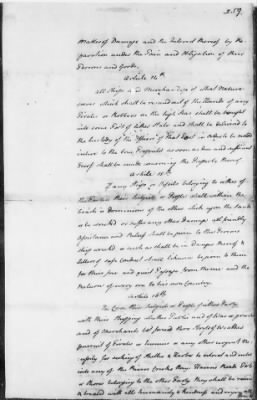 259.
matter of Damage and the Interest thereof by
paration under the Pain and Obligation of their
Persons and Goods.
Article 14th
All Ships and Merchandizes of what Nature
soever which shall be rescued out of the Hands of any
Pirates or Robbers on the high Seas shall be brought
into some Port of either State and shall be delivered to
the Custody of the Officers of that Port in order to be restored
intire to the true Proprietor as soon as due and sufficient
Proof shall be made concerning the Property thereof
Article 15th
If any Ships or Vessels belonging to either of
the Parties their Subjects or People shall within the
Coasts or Dominions of the other stick upon the Sands
or be wrecked or suffer any other Damage all friendly
Assistance and Relief shall be given to the Persons
ship wrecked or such as shall be in danger thereof &
Letters of safe Conduct shall likewise be given to them
for their free and quiet Passage from thence and the
Return of every one to his own Country.
Article 16th
In Case the Subjects or People of either Party
with their Shipping whether Publick and of War or private
and of Merchants be forced thro' Stress of Weather
pursuit of Pirates or Enemies or any other urgent Ne-
cessity for seeking of Shelter & Harbor to retreat and enter
into any of the Rivers Creeks Bays Havens Roads Ports
or Shores belonging to the other Party they shall be received
& treated with all humanity & Kindness and enjoy all